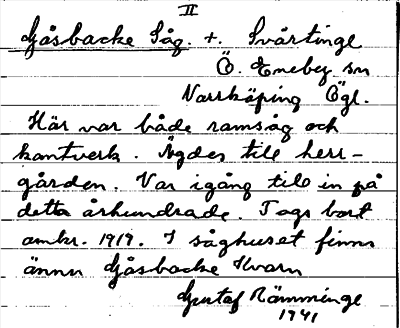 II
Gåsbacke Såg. +. Svärtinge
Ö. Eneby sn
Norrköping Ögl.
Här var både ramsåg och
kantverk. Ägdes till herr-
gården. Var igång till in på
detta århundrade. Togs bort
omkr. 1919. I såghuset finns
ännu Gåsbacke Kvarn
Gustaf Rämminge
1941